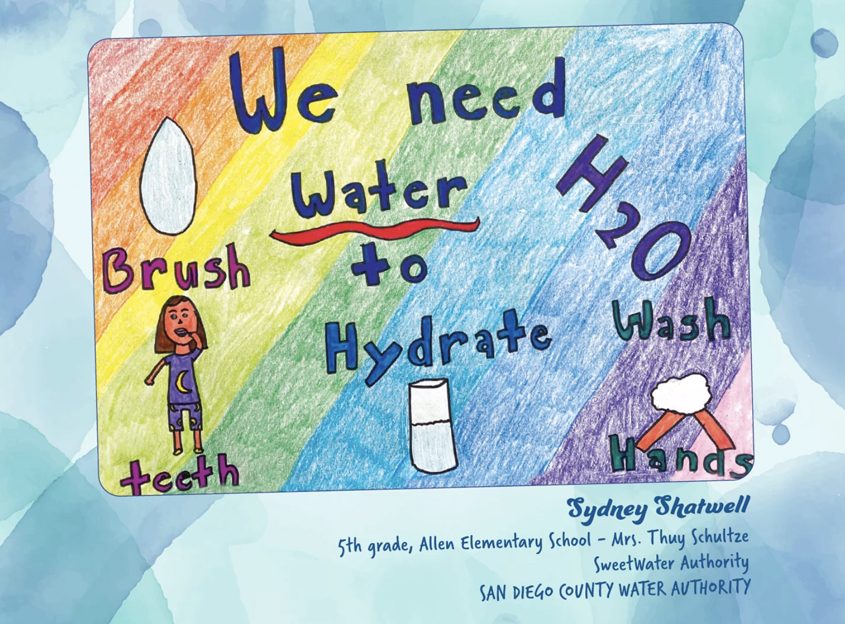 We need
Water
H2O
to
Brush
Hydrate
Wash
teeth
Hands
Sydney Shatwell
5th grade, Allen Elementary School – Mrs. Thuy Schultze
SweetWater Authority
SAN DIEGO COUNTY WATER AUTHORITY